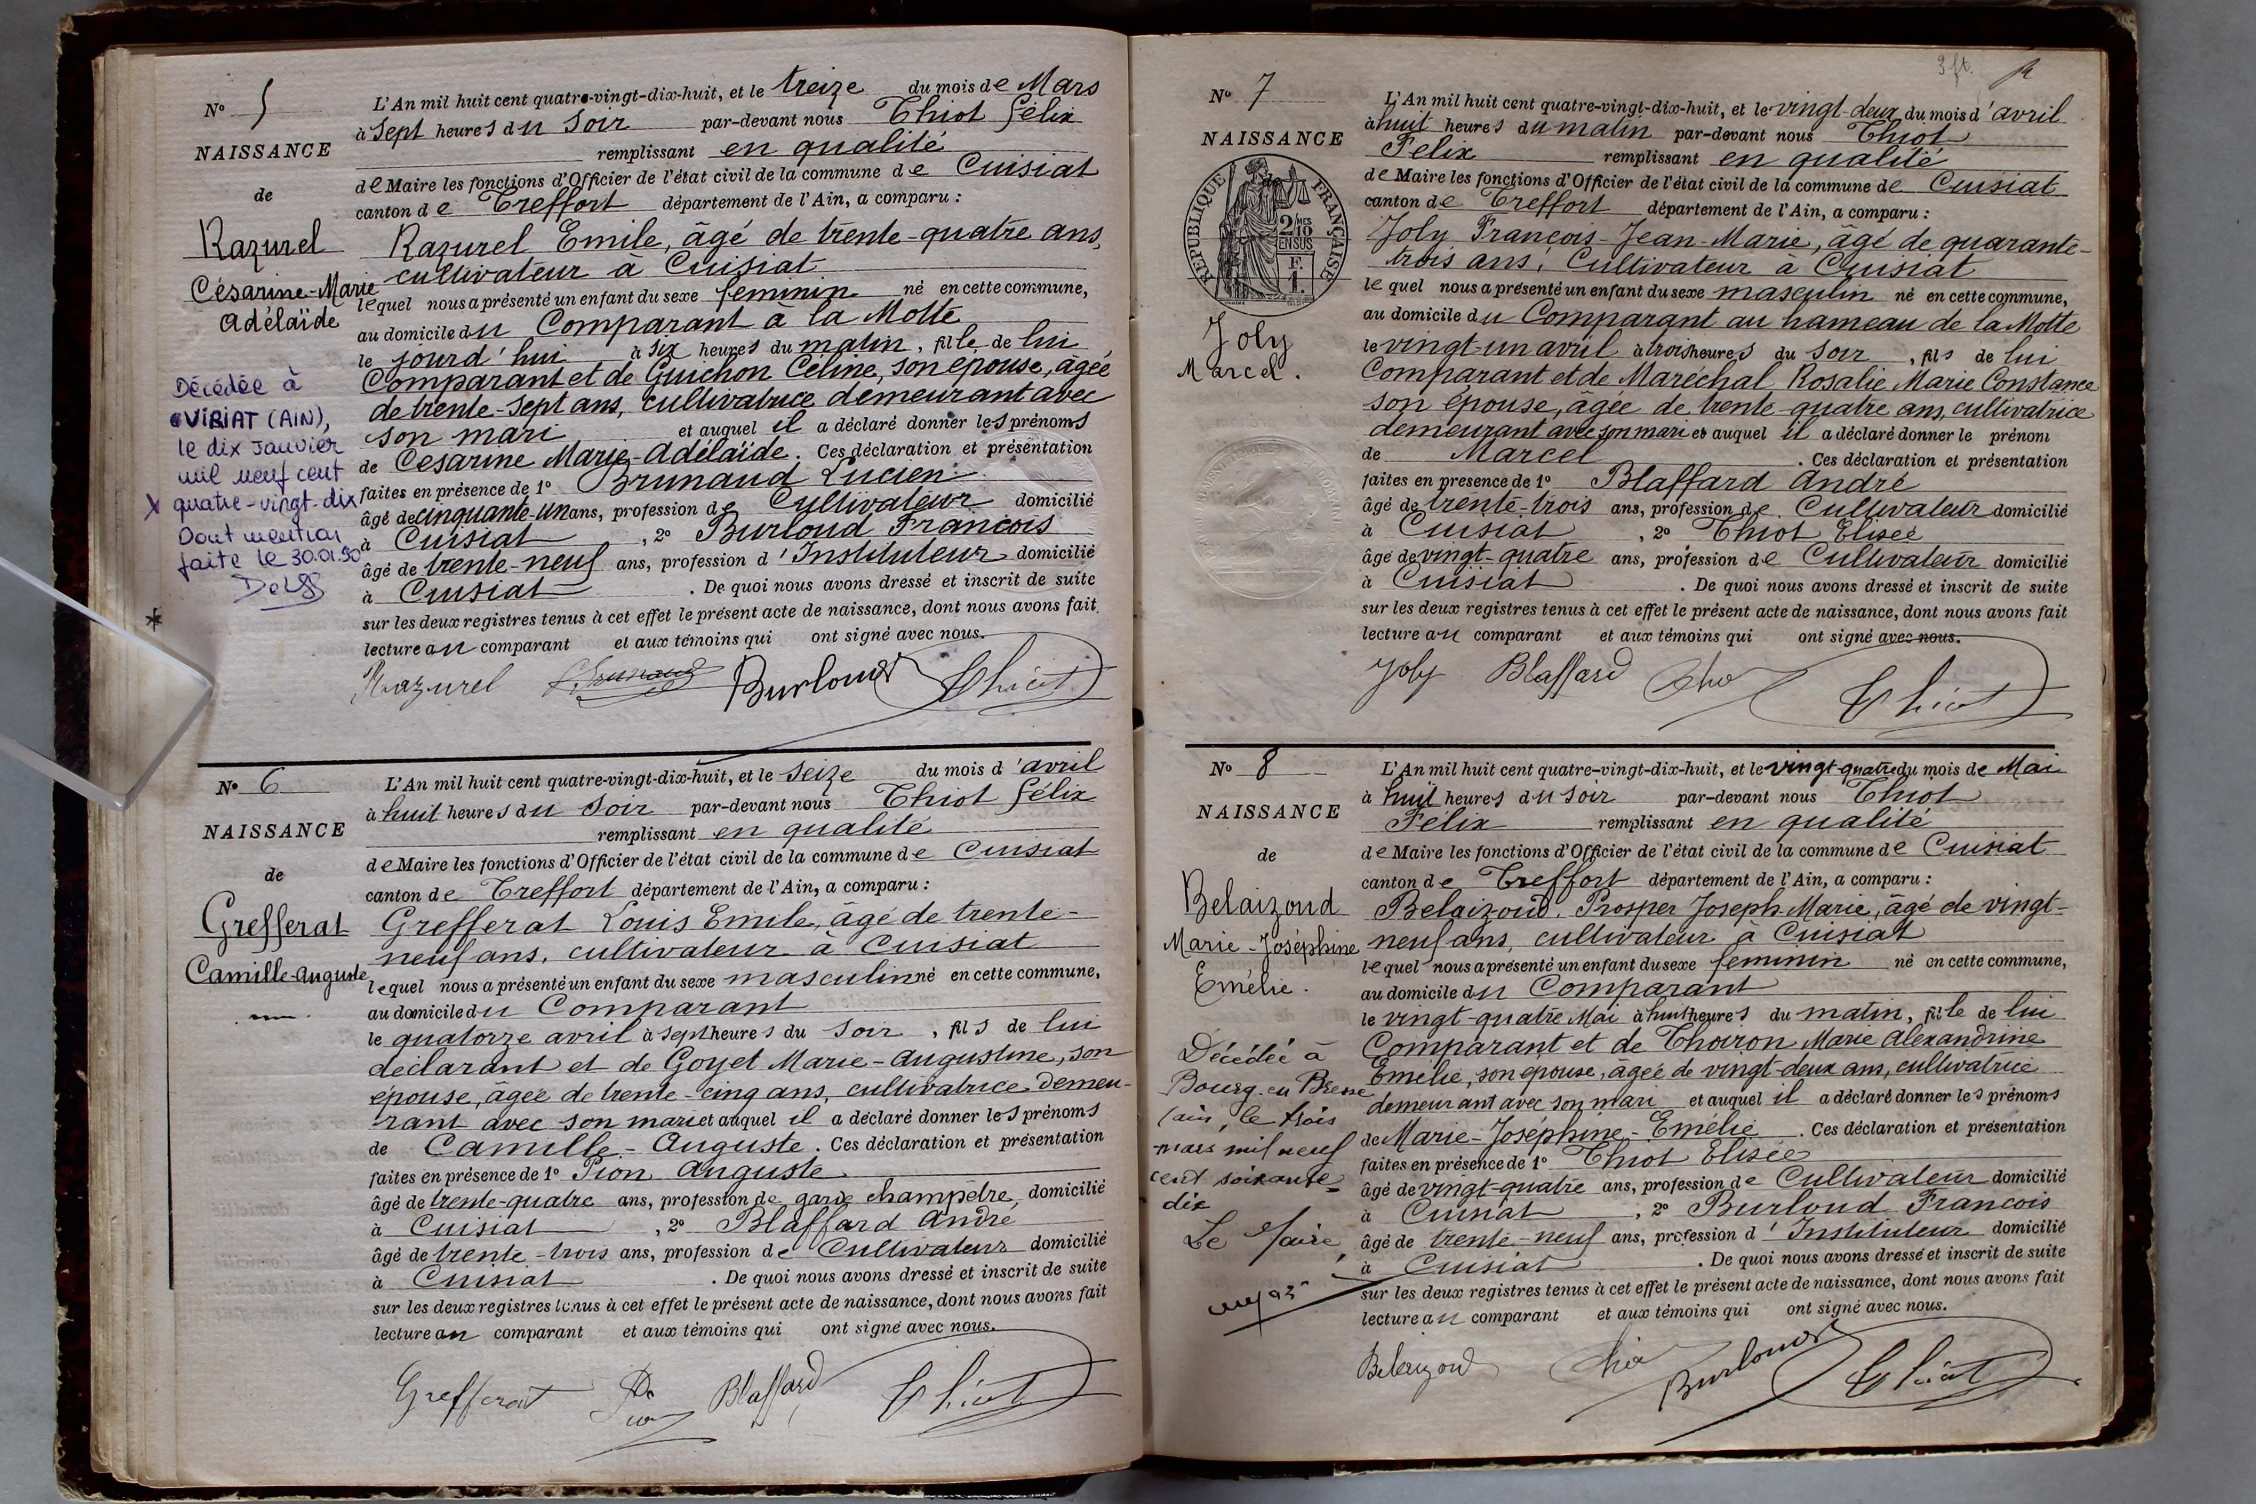 N° 5
NAISSANCE
de
Razurel
Césarine-Marie
Adélaïde
Décédée à
VIRIAT (AIN),
le dix Janvier
mil neuf cent
quatre-vingt-dix
Dont mention
faite le 30.01.90
L'An mil huit cent quatre-vingt-dix-huit, et le treize du mois de Mars
à sept heures du soir par-devant nous Thiot Félix
remplissant en qualité
de Maire les fonctions d'Officier de l'état civil de la commune de Cuisiat
canton de Treffort département de l'Ain, a comparu :
Razurel Emile, âgé de trente-quatre ans,
cultivateur à Cuisiat
lequel nous a présenté un enfant du sexe feminin né en cette commune,
au domicile du Comparant à la Motte
le jourd'hui à six heures du matin, fille de lui
Comparant et de Guichon Céline, son épouse, âgée
de trente-sept ans, cultivatrice demeurant avec
son mari et auquel il a déclaré donner les prénoms
de Césarine Marie-Adélaïde. Ces déclaration et présentation
faites en présence de 1° Brunaud Lucien
âgé de cinquante-un ans, profession de Cultivateur domicilié
à Cuisiat, 2° Burloud François
âgé de trente-neuf ans, profession d'Instituteur domicilié
à Cuisiat. De quoi nous avons dressé et inscrit de suite
sur les deux registres tenus à cet effet le présent acte de naissance, dont nous avons fait
lecture au comparant et aux témoins qui ont signé avec nous.
Razurel Brunaud Burloud Thiot
N° 6
NAISSANCE
de
Grefferat
Camille-Auguste
L'An mil huit cent quatre-vingt-dix-huit, et le seize du mois d'avril
à huit heures du soir par-devant nous Thiot Félix
remplissant en qualité
de Maire les fonctions d'Officier de l'état civil de la commune de Cuisiat
canton de Treffort département de l'Ain, a comparu :
Grefferat Louis Emile, âgé de trente-
neuf ans, cultivateur à Cuisiat
lequel nous a présenté un enfant du sexe masculin né en cette commune,
au domicile du Comparant
le quatorze avril à sept heures du soir, fils de lui
déclarant et de Goyet Marie-Augustine, son
épouse, âgée de trente-cinq ans, cultivatrice demeu-
rant avec son mari et auquel il a déclaré donner les prénoms
de Camille-Auguste. Ces déclaration et présentation
faites en présence de 1° Pion Auguste
âgé de trente-quatre ans, profession de garde champêtre, domicilié
à Cuisiat, 2° Blaffard André
âgé de trente-trois ans, profession de Cultivateur domicilié
à Cuisiat. De quoi nous avons dressé et inscrit de suite
sur les deux registres tenus à cet effet le présent acte de naissance, dont nous avons fait
lecture au comparant et aux témoins qui ont signé avec nous.
Grefferat Pion Blaffard Thiot
N° 7
NAISSANCE
RÉPUBLIQUE FRANÇAISE
2/10 MES
EN SUS
F.
1.
Joly
Marcel.
L'An mil huit cent quatre-vingt-dix-huit, et le vingt-deux du mois d'avril
à huit heures du matin par-devant nous Thiot
Félix remplissant en qualité
de Maire les fonctions d'Officier de l'état civil de la commune de Cuisiat
canton de Treffort département de l'Ain, a comparu :
Joly François-Jean-Marie, âgé de quarante-
trois ans, Cultivateur à Cuisiat
lequel nous a présenté un enfant du sexe masculin né en cette commune,
au domicile du Comparant au hameau de la Motte
le vingt-un avril à trois heures du soir, fils de lui
Comparant et de Maréchal Rosalie Marie Constance
son épouse, âgée de trente-quatre ans, cultivatrice
demeurant avec son mari et auquel il a déclaré donner le prénom
de Marcel. Ces déclaration et présentation
faites en présence de 1° Blaffard André
âgé de trente-trois ans, profession de Cultivateur domicilié
à Cuisiat, 2° Thiot Elisée
âgé de vingt-quatre ans, profession de Cultivateur domicilié
à Cuisiat. De quoi nous avons dressé et inscrit de suite
sur les deux registres tenus à cet effet le présent acte de naissance, dont nous avons fait
lecture au comparant et aux témoins qui ont signé avec nous.
Joly Blaffard Thiot
N° 8
NAISSANCE
de
Belaizoud
Marie-Joséphine
Emélie.
Décédée à
Bourg-en-Bresse
(ain), le trois
mars mil neuf
cent soixante-
dix
Le Maire,
L'An mil huit cent quatre-vingt-dix-huit, et le vingt-quatre du mois de Mai
à huit heures du soir par-devant nous Thiot
Félix remplissant en qualité
de Maire les fonctions d'Officier de l'état civil de la commune de Cuisiat
canton de Treffort département de l'Ain, a comparu :
Belaizoud, Prosper Joseph Marie, âgé de vingt-
neuf ans, cultivateur à Cuisiat
lequel nous a présenté un enfant du sexe feminin né en cette commune,
au domicile du Comparant
le vingt-quatre Mai à huit heures du matin, fille de lui
Comparant et de Thoiron Marie Alexandrine
Emélie, son épouse, âgée de vingt-deux ans, cultivatrice
demeurant avec son mari et auquel il a déclaré donner les prénoms
de Marie-Joséphine-Emélie. Ces déclaration et présentation
faites en présence de 1° Thiot Elisée
âgé de vingt-quatre ans, profession de Cultivateur domicilié
à Cuisiat, 2° Burloud François
âgé de trente-neuf ans, profession d'Instituteur domicilié
à Cuisiat. De quoi nous avons dressé et inscrit de suite
sur les deux registres tenus à cet effet le présent acte de naissance, dont nous avons fait
lecture au comparant et aux témoins qui ont signé avec nous.
Belaizoud Burloud Thiot